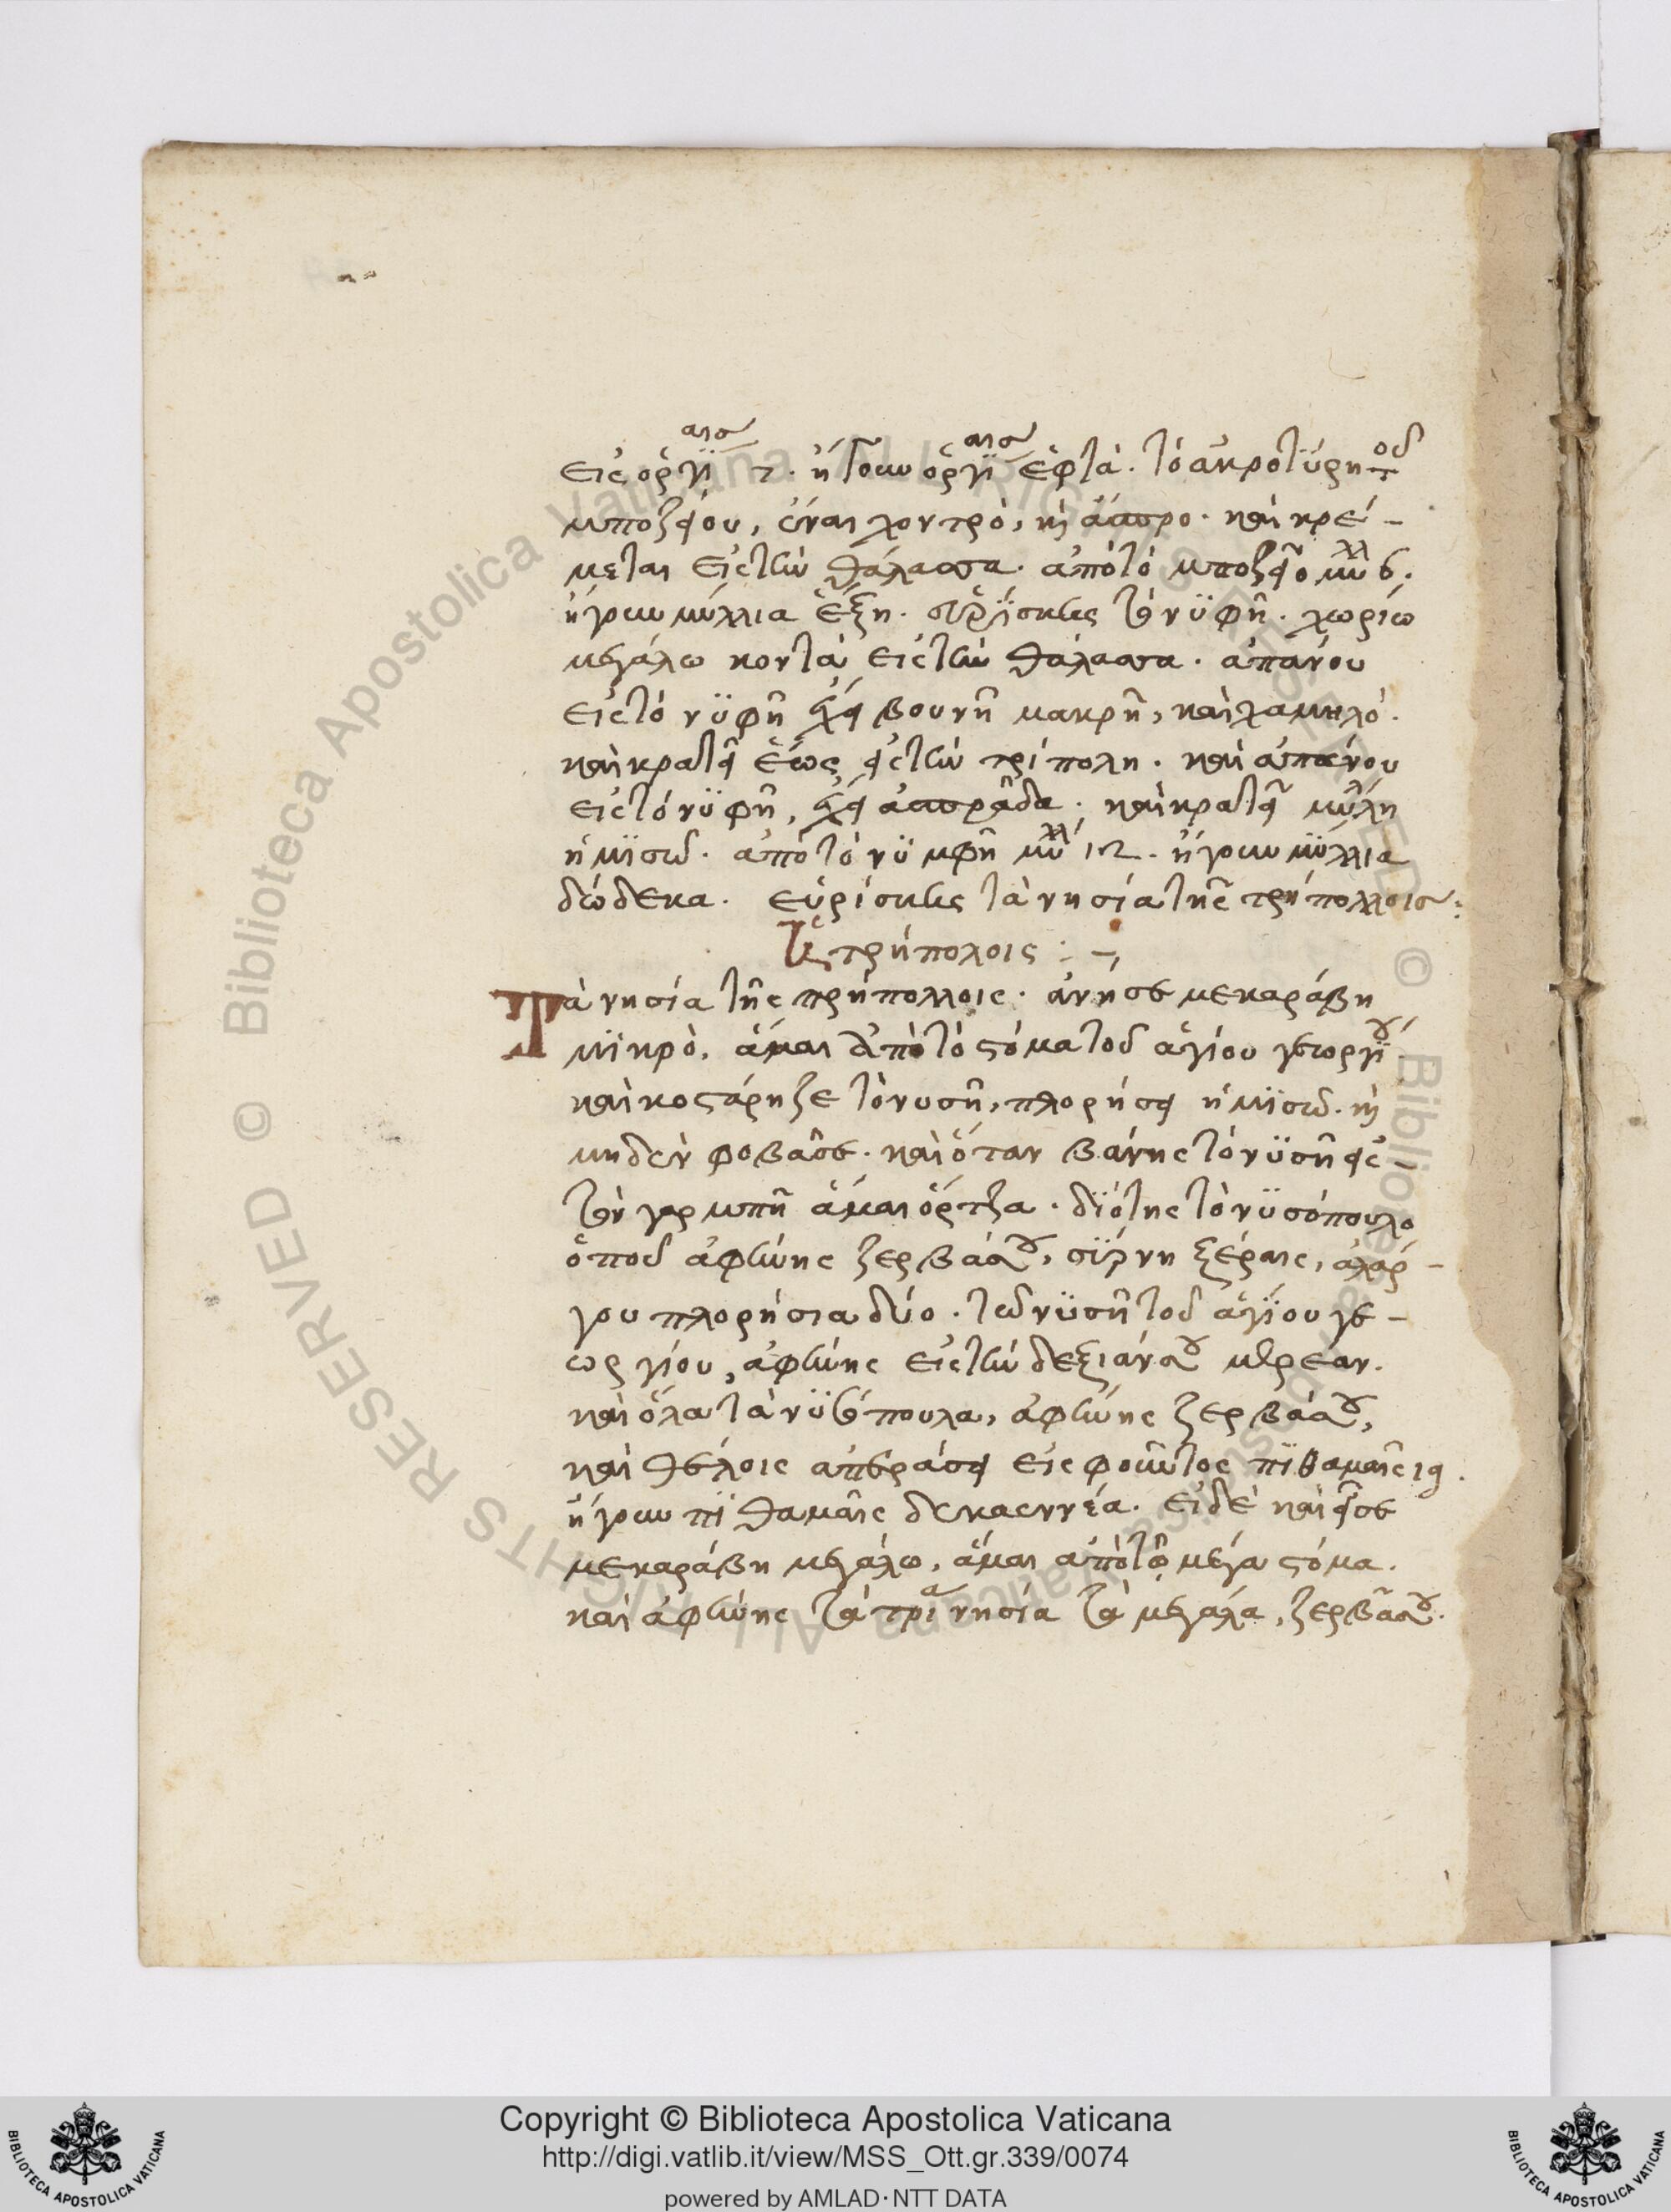 εἰς ὀργῒαις 7. ἤγουν ὀργῒαις ἑφτὰ. τὸ ἀκροτύρη τοῦ
μποζίου, ἔναι χοντρὸ, κὶ ἄσπρο. καὶ κρέ-
μεται εἰς τὴν θάλασσα. ἀπὸ τὸ μποζῖο μυλλ 6.
ἤγουν μύλλια ἕξη. εὑρΐσκεις τὸ νϋφῆ. χωρίω
μεγάλω κοντὰ εἰς τὴν θάλασσα. ἀπάνου
εἰς τὸ νϋφῆ ἔχει βουνῆ μακρῆ, καὶ χαμηλό.
καὶ κρατεῖ ἕως εἰς τὴν τρίπολη. καὶ ἀπάνου
εἰς τὸ νϋφῆ, ἔχει ἀσπράδα. καὶ κρατεῖ μύλη
ἥμϊσω. ἀπὸ τὸ νϋμφῆ μυλλ 12. ἤγουν μϋλλια
δώδεκα. εὑρίσκεις τὰ νησία τῆς τρήπολλοις:
τῆς τρήπολοις : -,
Τὰ νησία τῆς τρήπολλοις. ἀνῆσε με καράβη
μϊκρὸ, ἄμαι ἀπὸ τὸ στόμα τοῦ ἁγίου γεωργΐου.
καὶ κοστάρηζε τὸ νυσῆ, πλορήσι ἥμϊσω. κὶ
μηδὲν φοβᾶσε. καὶ ὅταν βάνης τὸ νϋσῆ εἰς-
τὸν γαρμπῆ ἄμαι ὄρτζα. δϊότης τὸ νϋσόπουλο
ὁποῦ ἀφήνης ζερβάσου, σΐρνη ξέραις, ἀλάρ-
γου πλορήσια δύο. τω νϋσῆ τοῦ ἁγΐου γε-
ωργίου, ἀφήνης εἰς τὴν δεξιάνσου μερέαν.
καὶ ὅλα τὰ νϋσόπουλα, ἀφήνης ζερβάσου,
καὶ θέλοις ἀπεράσει εἰς φοῦντος πϊθαμαῖς 19.
ἤγουν πϊθαμαῖς δεκαεννέα. εἰδὲ καὶ εἶσε
με καράβη μεγάλω, ἄμαι ἀπὸ τὸ μέγα στόμα.
καὶ ἀφήνης τὰ τρία νησία τὰ μεγάλα, ζερβᾶσου.
Copyright © Biblioteca Apostolica Vaticana
http://digi.vatlib.it/view/MSS_Ott.gr.339/0074
powered by AMLAD·NTT DATA